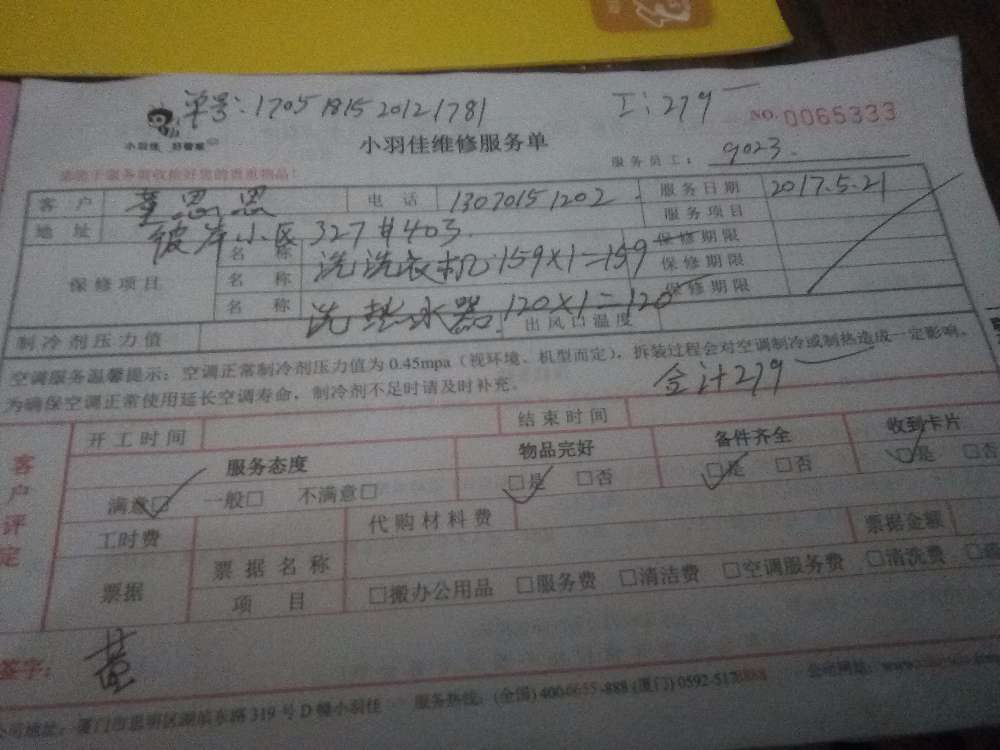 单号:1705181520121781 工:279
NO. 0065333
小羽佳 好管家
小羽佳维修服务单
服务员工: 9023.
请您于服务前收捡好您的贵重物品!
客户 董思思 电话 13070151202 服务日期 2017.5.21
地址 彼岸小区327#403. 服务项目
保修项目 名称 洗洗衣机.159×1=159 保修期限
名称 保修期限
名称 洗热水器.120×1=120 保修期限
制冷剂压力值 出风口温度
空调服务温馨提示:空调正常制冷剂压力值为0.45mpa(视环境、机型而定),拆装过程会对空调制冷或制热造成一定影响。
为确保空调正常使用延长空调寿命,制冷剂不足时请及时补充。 合计279
客户评定
开工时间 结束时间
服务态度 物品完好 备件齐全 收到卡片
满意☑ 一般□ 不满意□ ☑是 □否 ☑是 □否 ☑是 □否
工时费 代购材料费
票据 票据名称 票据金额
项目 □搬办公用品 □服务费 □清洁费 □空调服务费 □清洗费
签字: 董
公司地址:厦门市思明区湖滨东路319号D幢小羽佳 服务热线:(全国)4006655-888(厦门)0592-5178888 公司网址: